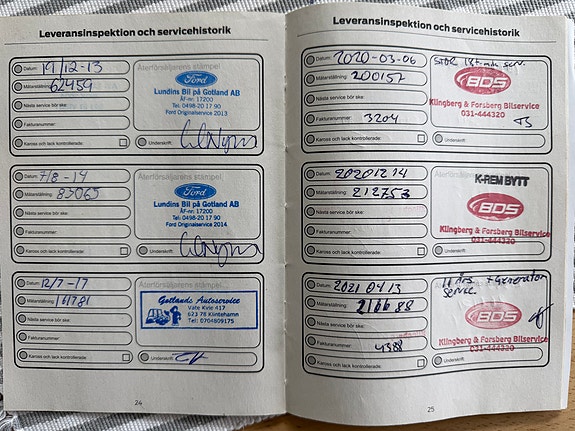 Leveransinspektion och servicehistorik
Datum: 19/12-13
Mätarställning: 62459
Nästa service bör ske:
Fakturanummer:
Kaross och lack kontrollerade:
Återförsäljarens stämpel
Ford
Lundins Bil på Gotland AB
ÅF-nr: 17200
Tel: 0498-20 17 90
Ford Originalservice 2013
Underskrift:
Datum: 7/8-14
Mätarställning: 83065
Nästa service bör ske:
Fakturanummer:
Kaross och lack kontrollerade:
Återförsäljarens stämpel
Ford
Lundins Bil på Gotland AB
ÅF-nr: 17200
Tel: 0498-20 17 90
Ford Originalservice 2014
Underskrift:
Datum: 12/7-17
Mätarställning:
Nästa service bör ske:
Fakturanummer:
Kaross och lack kontrollerade:
Gotlands Autoservice
Vate Kvie 417
623 78 Klintehamn
Tel: 0704809175
Underskrift:
24
Leveransinspektion och servicehistorik
Datum: 2020-03-06
Mätarställning: 200157
Nästa service bör ske:
Fakturanummer: 3204
Kaross och lack kontrollerade:
STOR serv.
BDS
Klingberg & Forsberg Bilservice
031-444320
Underskrift:
Datum: 20201214
Mätarställning: 212753
Nästa service bör ske:
Fakturanummer:
Kaross och lack kontrollerade:
Återförsäljarens stämpel
K-REM BYTT
BDS
Klingberg & Forsberg Bilservice
031-444320
Underskrift:
Datum: 2021 04 13
Mätarställning: 216688
Nästa service bör ske:
Fakturanummer: 4388
Kaross och lack kontrollerade:
11 års + Generator
Service.
BDS
Klingberg & Forsberg Bilservice
031-444320
Underskrift:
25